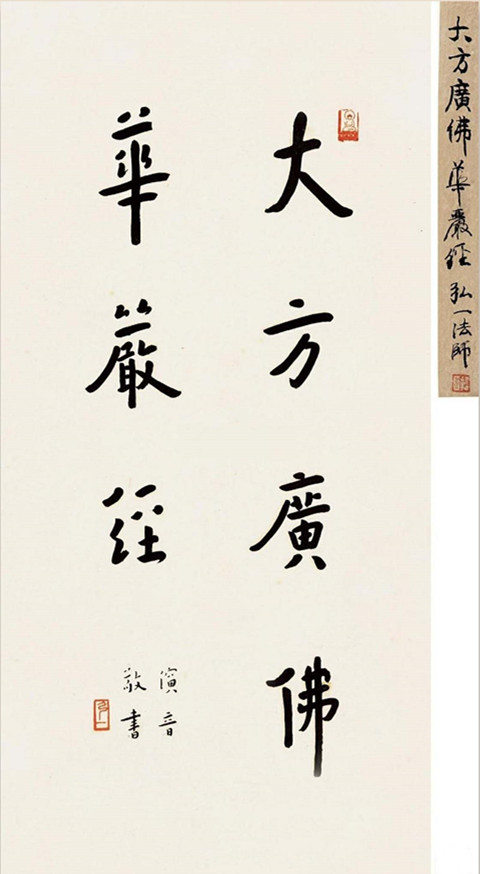 大方廣佛
華嚴經
演音
敬書
大方廣佛華嚴經 弘一法師